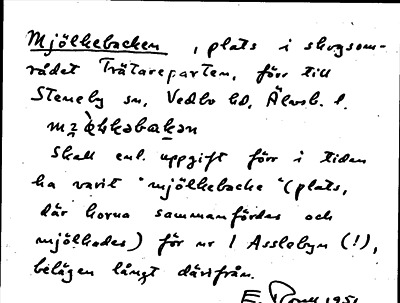 Mjölkebacken, plats i skogsom-
rådet Trätareparten, förr till
Steneby sn, Vedbo hd, Älvsb. l.
Skall enl. uppgift förr i tiden
ha varit "mjölkebacke" (plats,
där korna sammanfördes och
mjölkades) för nr 1 Asslebyn (!),
belägen långt därifrån.
1951